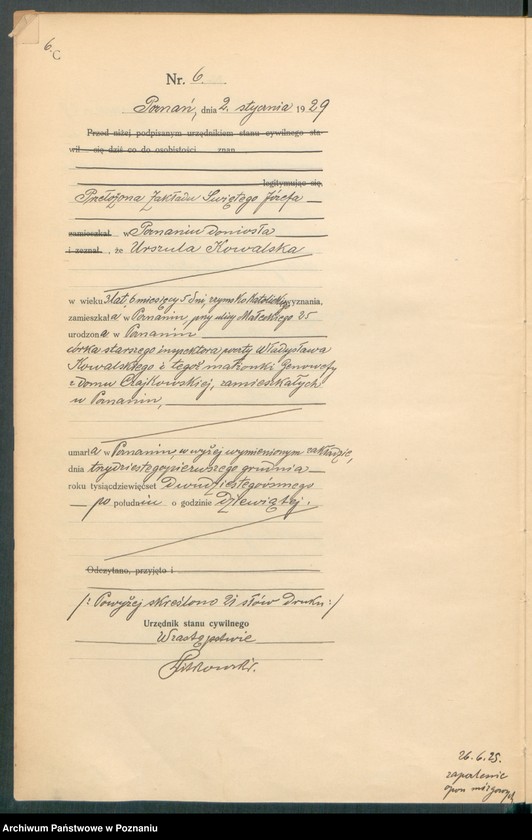 6.
C
Nr. 6.
Poznań, dnia 2. stycznia 1929
Przed niżej podpisanym urzędnikiem stanu cywilnego sta-
wił się dziś co do osobistości znan
legitymując się
Przełożona Zakładu Świętego Józefa
zamieszkał w Poznaniu doniosła
i zeznał , że Urszula Kowalska
w wieku 3 lat, 6 miesięcy 5 dni, rzymsko katolickiego wyznania,
zamieszkała w Poznaniu, przy ulicy Małeckiego 25
urodzona w Poznaniu
córka starszego inspektora poczty Władysława
Kowalskiego i tegoż małżonki Genowefy
z domu Czajkowskiej, zamieszkałych
w Poznaniu,
umarła w Poznaniu, w wyżej wymienionym zakładzie,
dnia trzydziestegopierwszego grudnia
roku tysiącdziewięćset dwudziestegoósmego
po południu o godzinie dziewiątej.
Odczytano, przyjęto i
/: Powyżej skreślono 21 słów druku :/
Urzędnik stanu cywilnego
W zastępstwie
26.6.25.
zapalenie
opon mózgowych
Archiwum Państwowe w Poznaniu